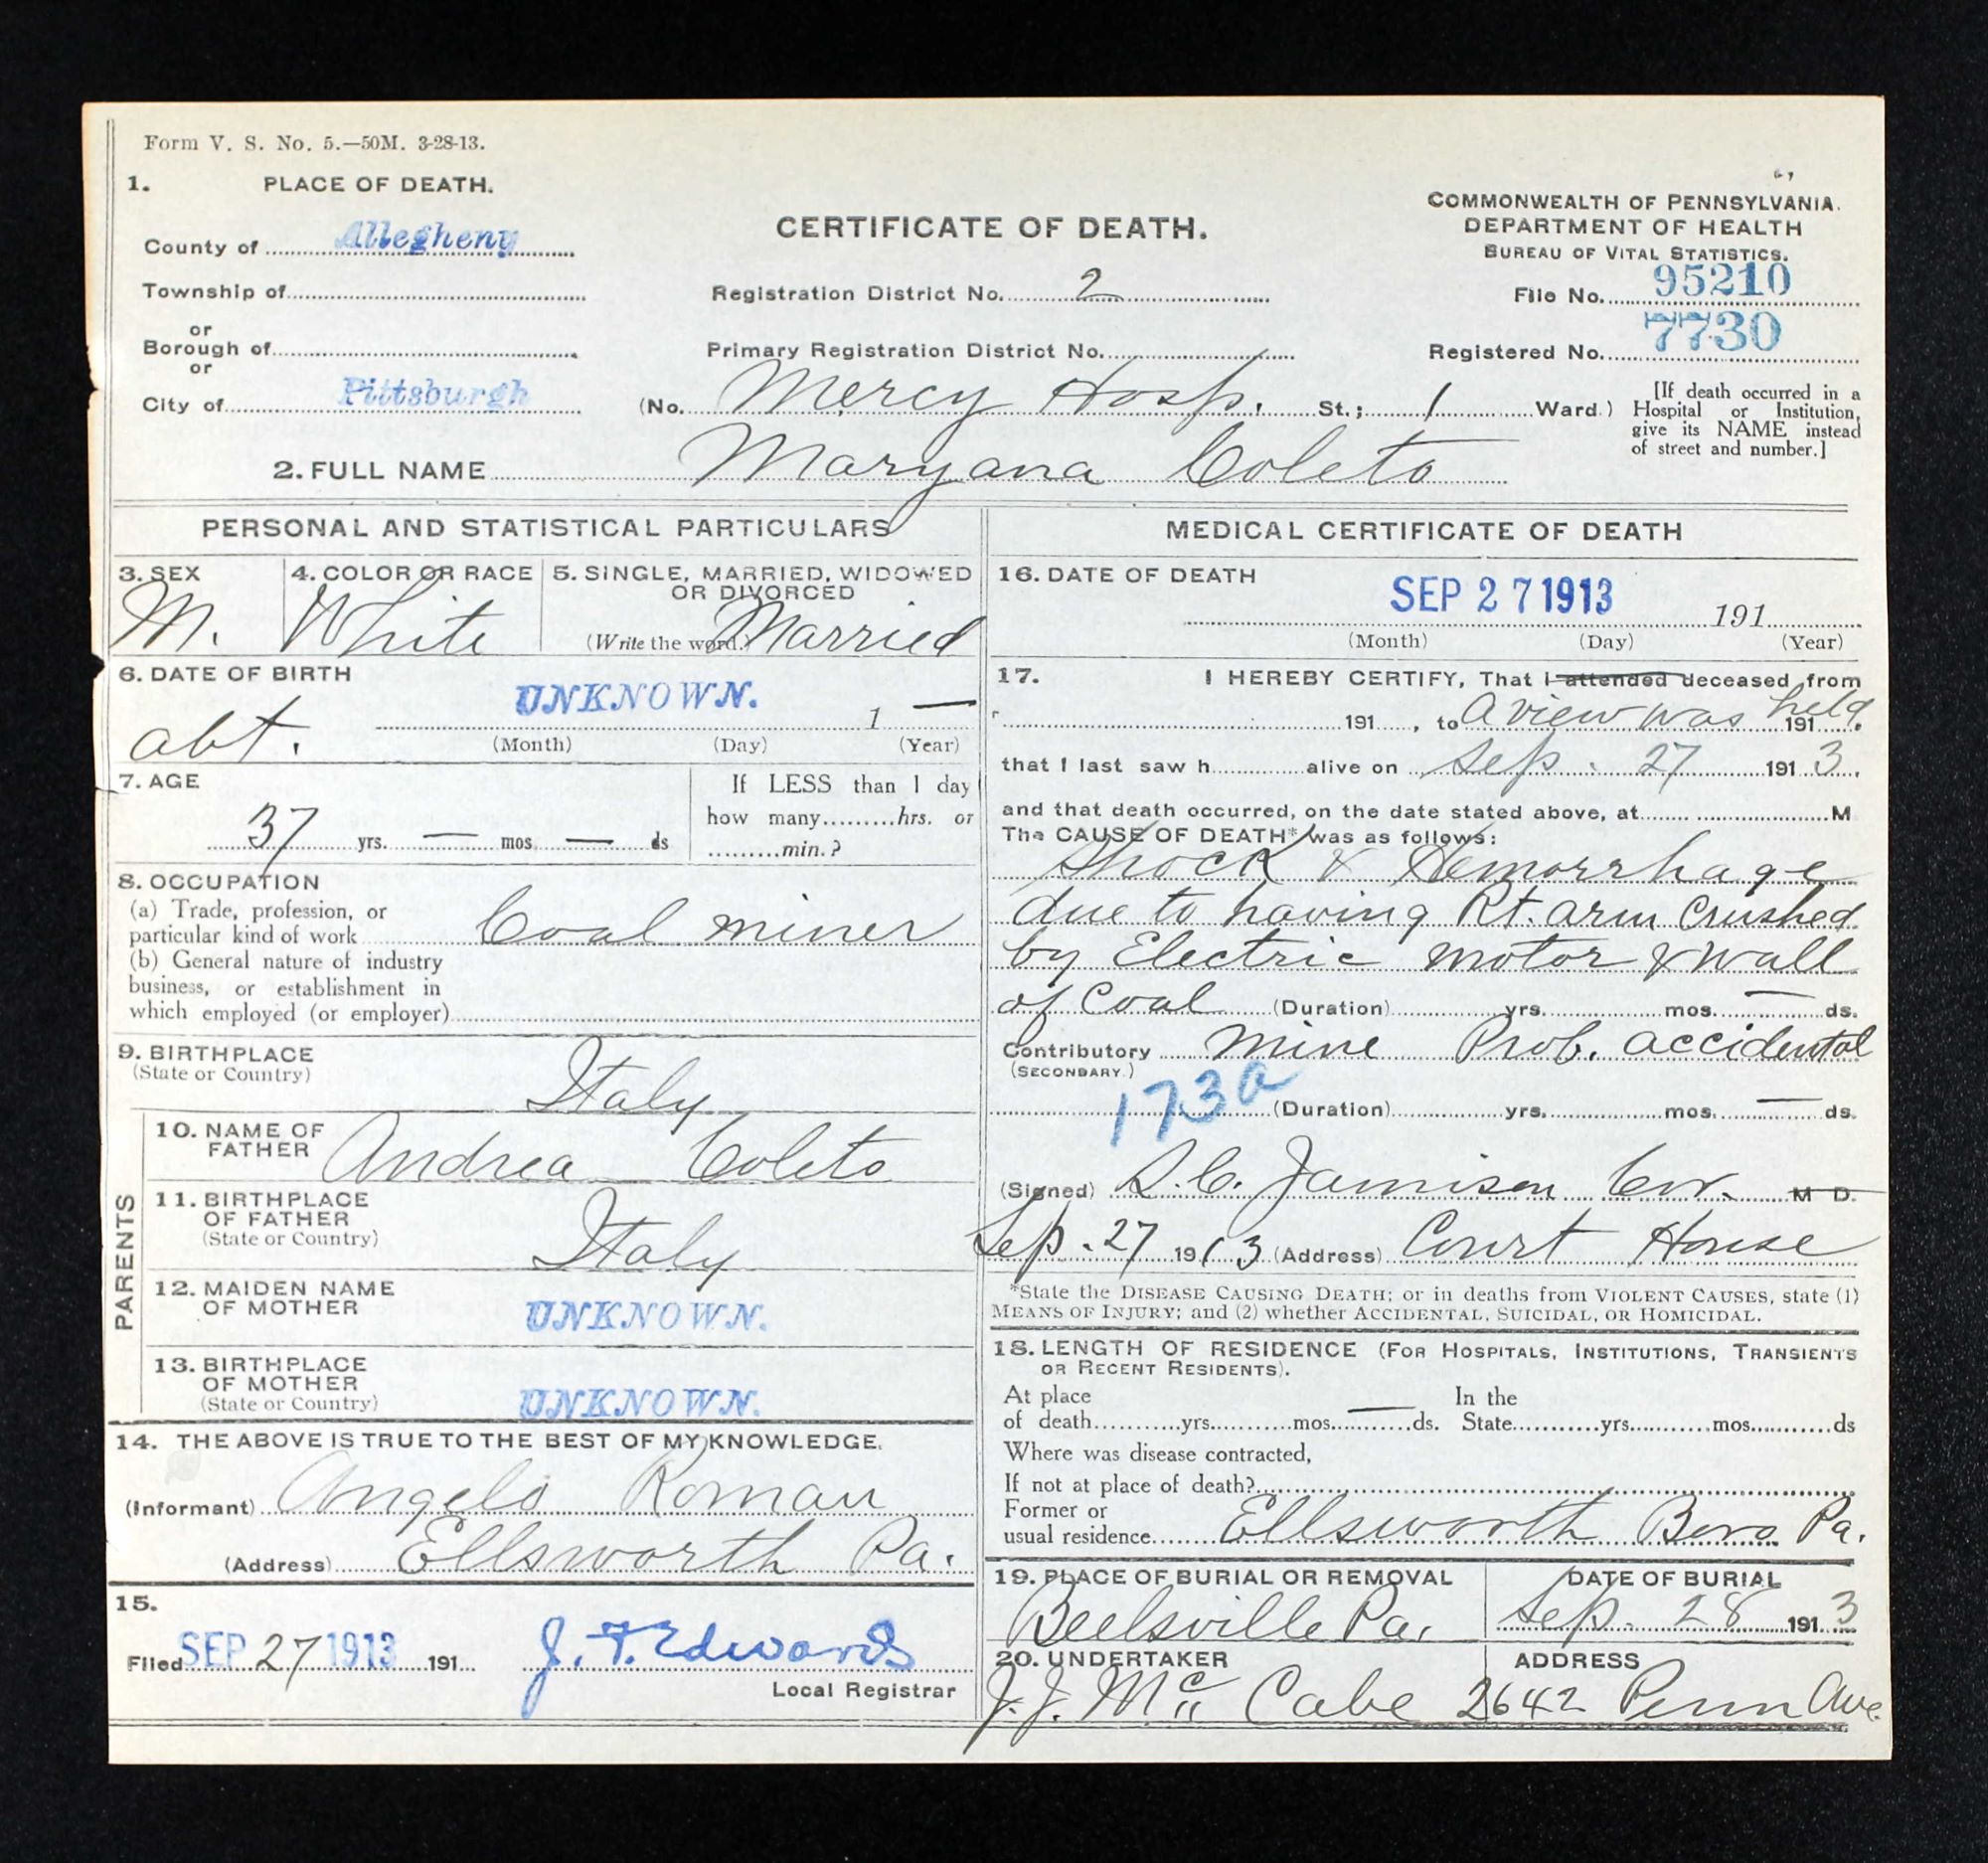 Form V. S. No. 5.—50M. 3-28-13.
1. PLACE OF DEATH.
County of Allegheny
Township of
or
Borough of
or
City of Pittsburgh
CERTIFICATE OF DEATH.
Registration District No. 2
Primary Registration District No.
(No. Mercy Hosp. St.; 1 Ward.)
COMMONWEALTH OF PENNSYLVANIA.
DEPARTMENT OF HEALTH
BUREAU OF VITAL STATISTICS.
File No. 95210
Registered No. 7730
[If death occurred in a
Hospital or Institution,
give its NAME instead
of street and number.]
2. FULL NAME Maryana Coleto
PERSONAL AND STATISTICAL PARTICULARS
3. SEX
M.
4. COLOR OR RACE
White
5. SINGLE, MARRIED, WIDOWED
OR DIVORCED
(Write the word.) Married
6. DATE OF BIRTH
abt. UNKNOWN. 1 —
(Month) (Day) (Year)
7. AGE
37 yrs. — mos. — ds
If LESS than 1 day
how many.........hrs. or
.........min.?
8. OCCUPATION
(a) Trade, profession, or
particular kind of work Coal miner
(b) General nature of industry
business, or establishment in
which employed (or employer)
9. BIRTHPLACE
(State or Country)
Italy
PARENTS
10. NAME OF
FATHER Andrea Coleto
11. BIRTHPLACE
OF FATHER
(State or Country)
Italy
12. MAIDEN NAME
OF MOTHER UNKNOWN.
13. BIRTHPLACE
OF MOTHER
(State or Country) UNKNOWN.
14. THE ABOVE IS TRUE TO THE BEST OF MY KNOWLEDGE.
(Informant) Angelo Roman
(Address) Ellsworth Pa.
15.
Filed SEP 27 1913 191 J. F. Edwards
Local Registrar
MEDICAL CERTIFICATE OF DEATH
16. DATE OF DEATH
SEP 27 1913 191
(Month) (Day) (Year)
17. I HEREBY CERTIFY, That I attended deceased from
191 , to A view was held 191 .
that I last saw h alive on Sep. 27 191 3.
and that death occurred, on the date stated above, at M
The CAUSE OF DEATH* was as follows:
Shock & Hemorrhage
due to having Rt. arm crushed
by Electric motor & wall
of Coal (Duration) yrs. mos. — ds.
Contributory mine Prob. accidental
(SECONDARY.)
173a (Duration) yrs. mos. — ds.
(Signed) S.C. Jamison Cor. M D.
Sep. 27 1913 (Address) Court House
*State the DISEASE CAUSING DEATH; or in deaths from VIOLENT CAUSES, state (1)
MEANS OF INJURY; and (2) whether ACCIDENTAL, SUICIDAL, OR HOMICIDAL.
18. LENGTH OF RESIDENCE (FOR HOSPITALS, INSTITUTIONS, TRANSIENTS
OR RECENT RESIDENTS).
At place In the
of death yrs. mos. — ds. State yrs. mos. ds
Where was disease contracted,
If not at place of death?
Former or
usual residence Ellsworth Boro Pa.
19. PLACE OF BURIAL OR REMOVAL
Beelsville Pa.
DATE OF BURIAL
Sep. 28 191 3
20. UNDERTAKER
J. J. McCabe
ADDRESS
2642 Penn Ave.